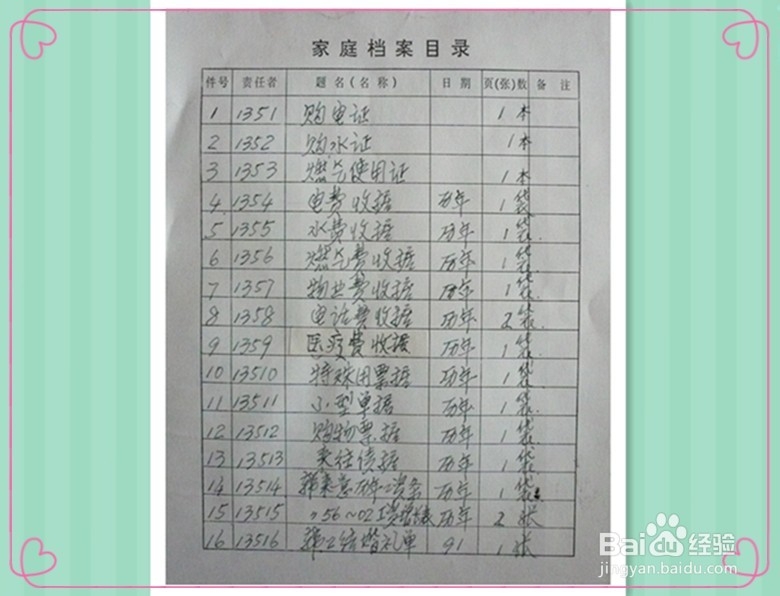 家庭档案目录
件号 责任者 题名(名称) 日期 页(张)数 备注
1 1351 购电证 1本
2 1352 购水证 1本
3 1353 燃气使用证 1本
4 1354 电费收据 历年 1袋
5 1355 水费收据 历年 1袋
6 1356 燃气费收据 历年 1袋
7 1357 物业费收据 历年 1袋
8 1358 电话费收据 历年 2袋
9 1359 医疗费收据 历年 1袋
10 13510 特殊用票据 历年 1袋
11 13511 小型单据 历年 1袋
12 13512 购物票据 历年 1袋
13 13513 来往债据 历年 1袋
14 13514 历年工资条 历年 1袋
15 13515 〃56~02工资 历年 2张
16 13516 结婚礼单 91 1张
Baidu经验
jingyan.baidu.com